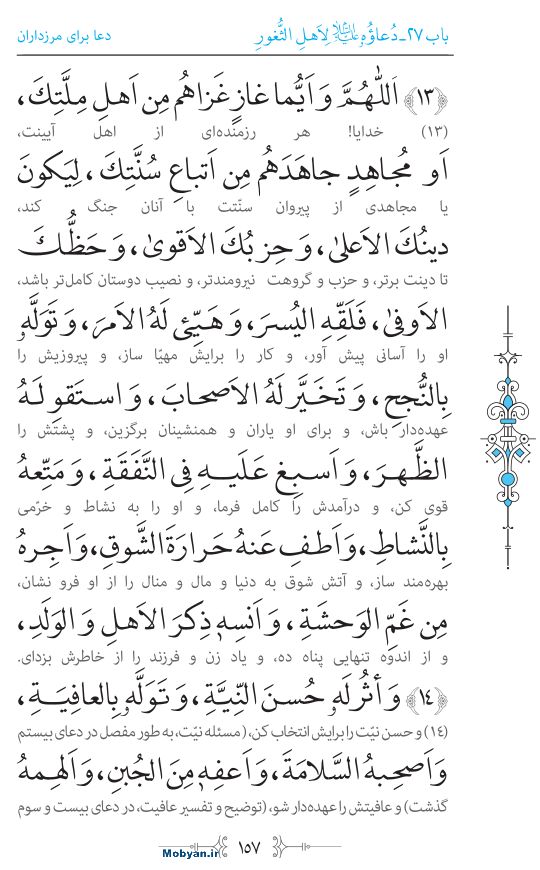 باب ۲۷-دُعاؤُهُ علیه‌السلام لِاَهلِ الثُّغورِ
دعا برای مرزداران
﴿۱۳﴾ اَللّٰهُمَّ وَ اَیُّما غازٍ غَزاهُم مِن اَهلِ مِلَّتِكَ،
(۱۳) خدایا! هر رزمنده‌ای از اهل آیینت،
اَو مُجاهِدٍ جاهَدَهُم مِن اَتباعِ سُنَّتِكَ، لِیَكونَ
یا مجاهدی از پیروان سنّتت با آنان جنگ کند،
دینُكَ الاَعلیٰ، وَ حِزبُكَ الاَقویٰ، وَ حَظُّكَ
تا دینت برتر، و حزب و گروهت نیرومندتر، و نصیب دوستان کامل‌تر باشد،
الاَوفیٰ، فَلَقِّهِ الیُسرَ، وَ هَیِّئ لَهُ الاَمرَ، وَ تَوَلَّهُ
او را آسانی پیش آور، و کار را برایش مهیّا ساز، و پیروزیش را
بِالنُّجحِ، وَ تَخَیَّر لَهُ الاَصحابَ، وَ استَقوِ لَهُ
عهده‌دار باش، و برای او یاران و همنشینان برگزین، و پشتش را
الظَّهرَ، وَ اَسبِغ عَلَیهِ فِی النَّفَقَةِ، وَ مَتِّعهُ
قوی کن، و درآمدش را کامل فرما، و او را به نشاط و خرّمی
بِالنَّشاطِ، وَ اَطفِ عَنهُ حَرارَةَ الشَّوقِ، وَ اَجِرهُ
بهره‌مند ساز، و آتش شوق به دنیا و مال و منال را از او فرو نشان،
مِن غَمِّ الوَحشَةِ، وَ اَنسِهِ ذِكرَ الاَهلِ وَ الوَلَدِ،
و از اندوه تنهایی پناه ده، و یاد زن و فرزند را از خاطرش بزدای.
﴿۱۴﴾ وَ أثُر لَهُ حُسنَ النِّیَّةِ، وَ تَوَلَّهُ بِالعافِیَةِ،
(۱۴) و حسن نیّت را برایش انتخاب کن، (مسئله نیّت، به طور مفصل در دعای بیستم
وَ اَصحِبهُ السَّلامَةَ، وَ اَعفِهِ مِنَ الجُبنِ، وَ اَلهِمهُ
گذشت) و عافیتش را عهده‌دار شو، (توضیح و تفسیر عافیت، در دعای بیست و سوم
۱۵۷
Mobyan.ir